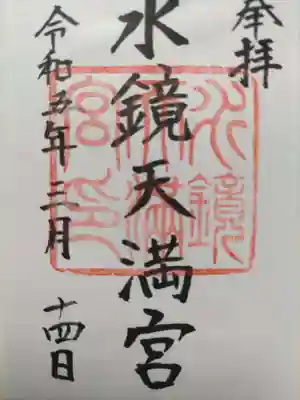 奉拝
水鏡天満宮
水鏡天満宮印
令和五年三月十四日